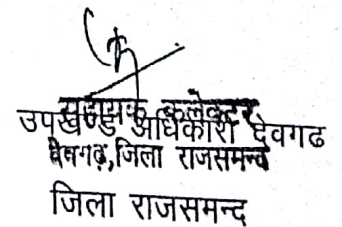 सहायक कलेक्टर
उपखण्ड अधिकारी देवगढ
देवगढ़, जिला राजसमन्द
जिला राजसमन्द